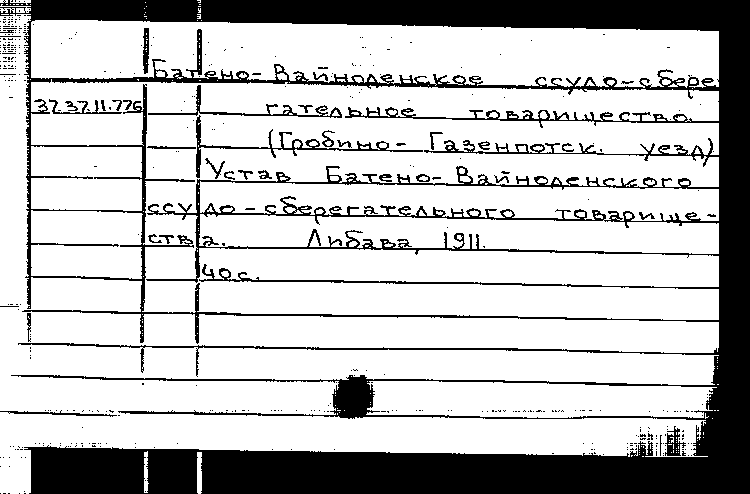 Батено-Вайноденское ссудо-сбере
37.37.11.776 гательное товарищество.
(Гробино-Газенпотск. уезд)
Устав Батено-Вайноденского
ссудо-сберегательного товарище-
ства. Либава, 1911.
40 с.